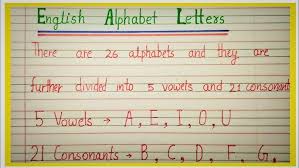 English Alphabet Letters
There are 26 alphabets and they are
further divided into 5 vowels and 21 consonant
5 Vowels → A, E, I, O, U
21 Consonants → B, C, D, F, G,